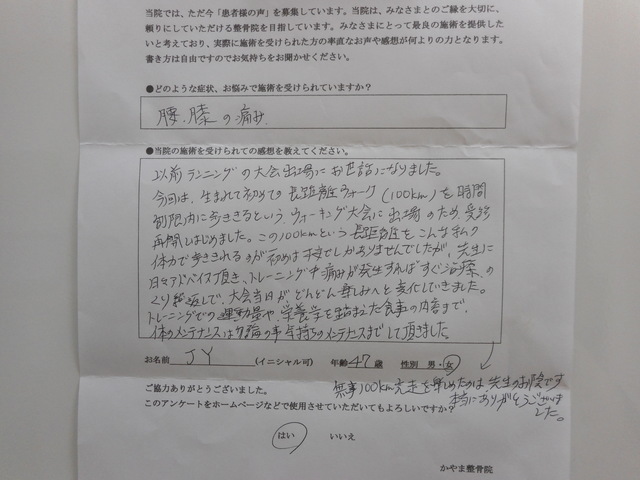 当院では、ただ今「患者様の声」を募集しています。当院は、みなさまとのご縁を大切に、
頼りにしていただける整骨院を目指しています。みなさまにとって最良の施術を提供した
いと考えており、実際に施術を受けられた方の率直なお声や感想が何よりの力となります。
書き方は自由ですのでお気持ちをお聞かせください。
●どのような症状、お悩みで施術を受けられていますか？
腰、膝の痛み
●当院の施術を受けられての感想を教えてください。
以前ランニングの大会出場にお世話になりました。
今回は、生まれて初めての長距離ウォーク(100km)を時間
制限内に歩ききるという、ウォーキング大会に出場のため、受診
再開しはじめました。この100kmという長距離をこんな私の
体力で歩ききれるのが初めは不安でしかありませんでしたが、先生に
日々アドバイス頂き、トレーニング中痛みが発生すればすぐ治療、の
くり返しで、大会当日が、どんどん楽しみへと変化していきました。
トレーニングでの運動量や、栄養学を踏まえた食事の内容まで、
体のメンテナンスは勿論の事気持ちのメンテナスまでして頂きました。
お名前 JY (イニシャル可) 年齢 47 歳 性別 男・女
無事100km完走を楽しめたのは先生のお陰です
本当にありがとうございま
した。
ご協力ありがとうございました。
このアンケートをホームページなどで使用させていただいてもよろしいですか？
はい いいえ
かやま整骨院